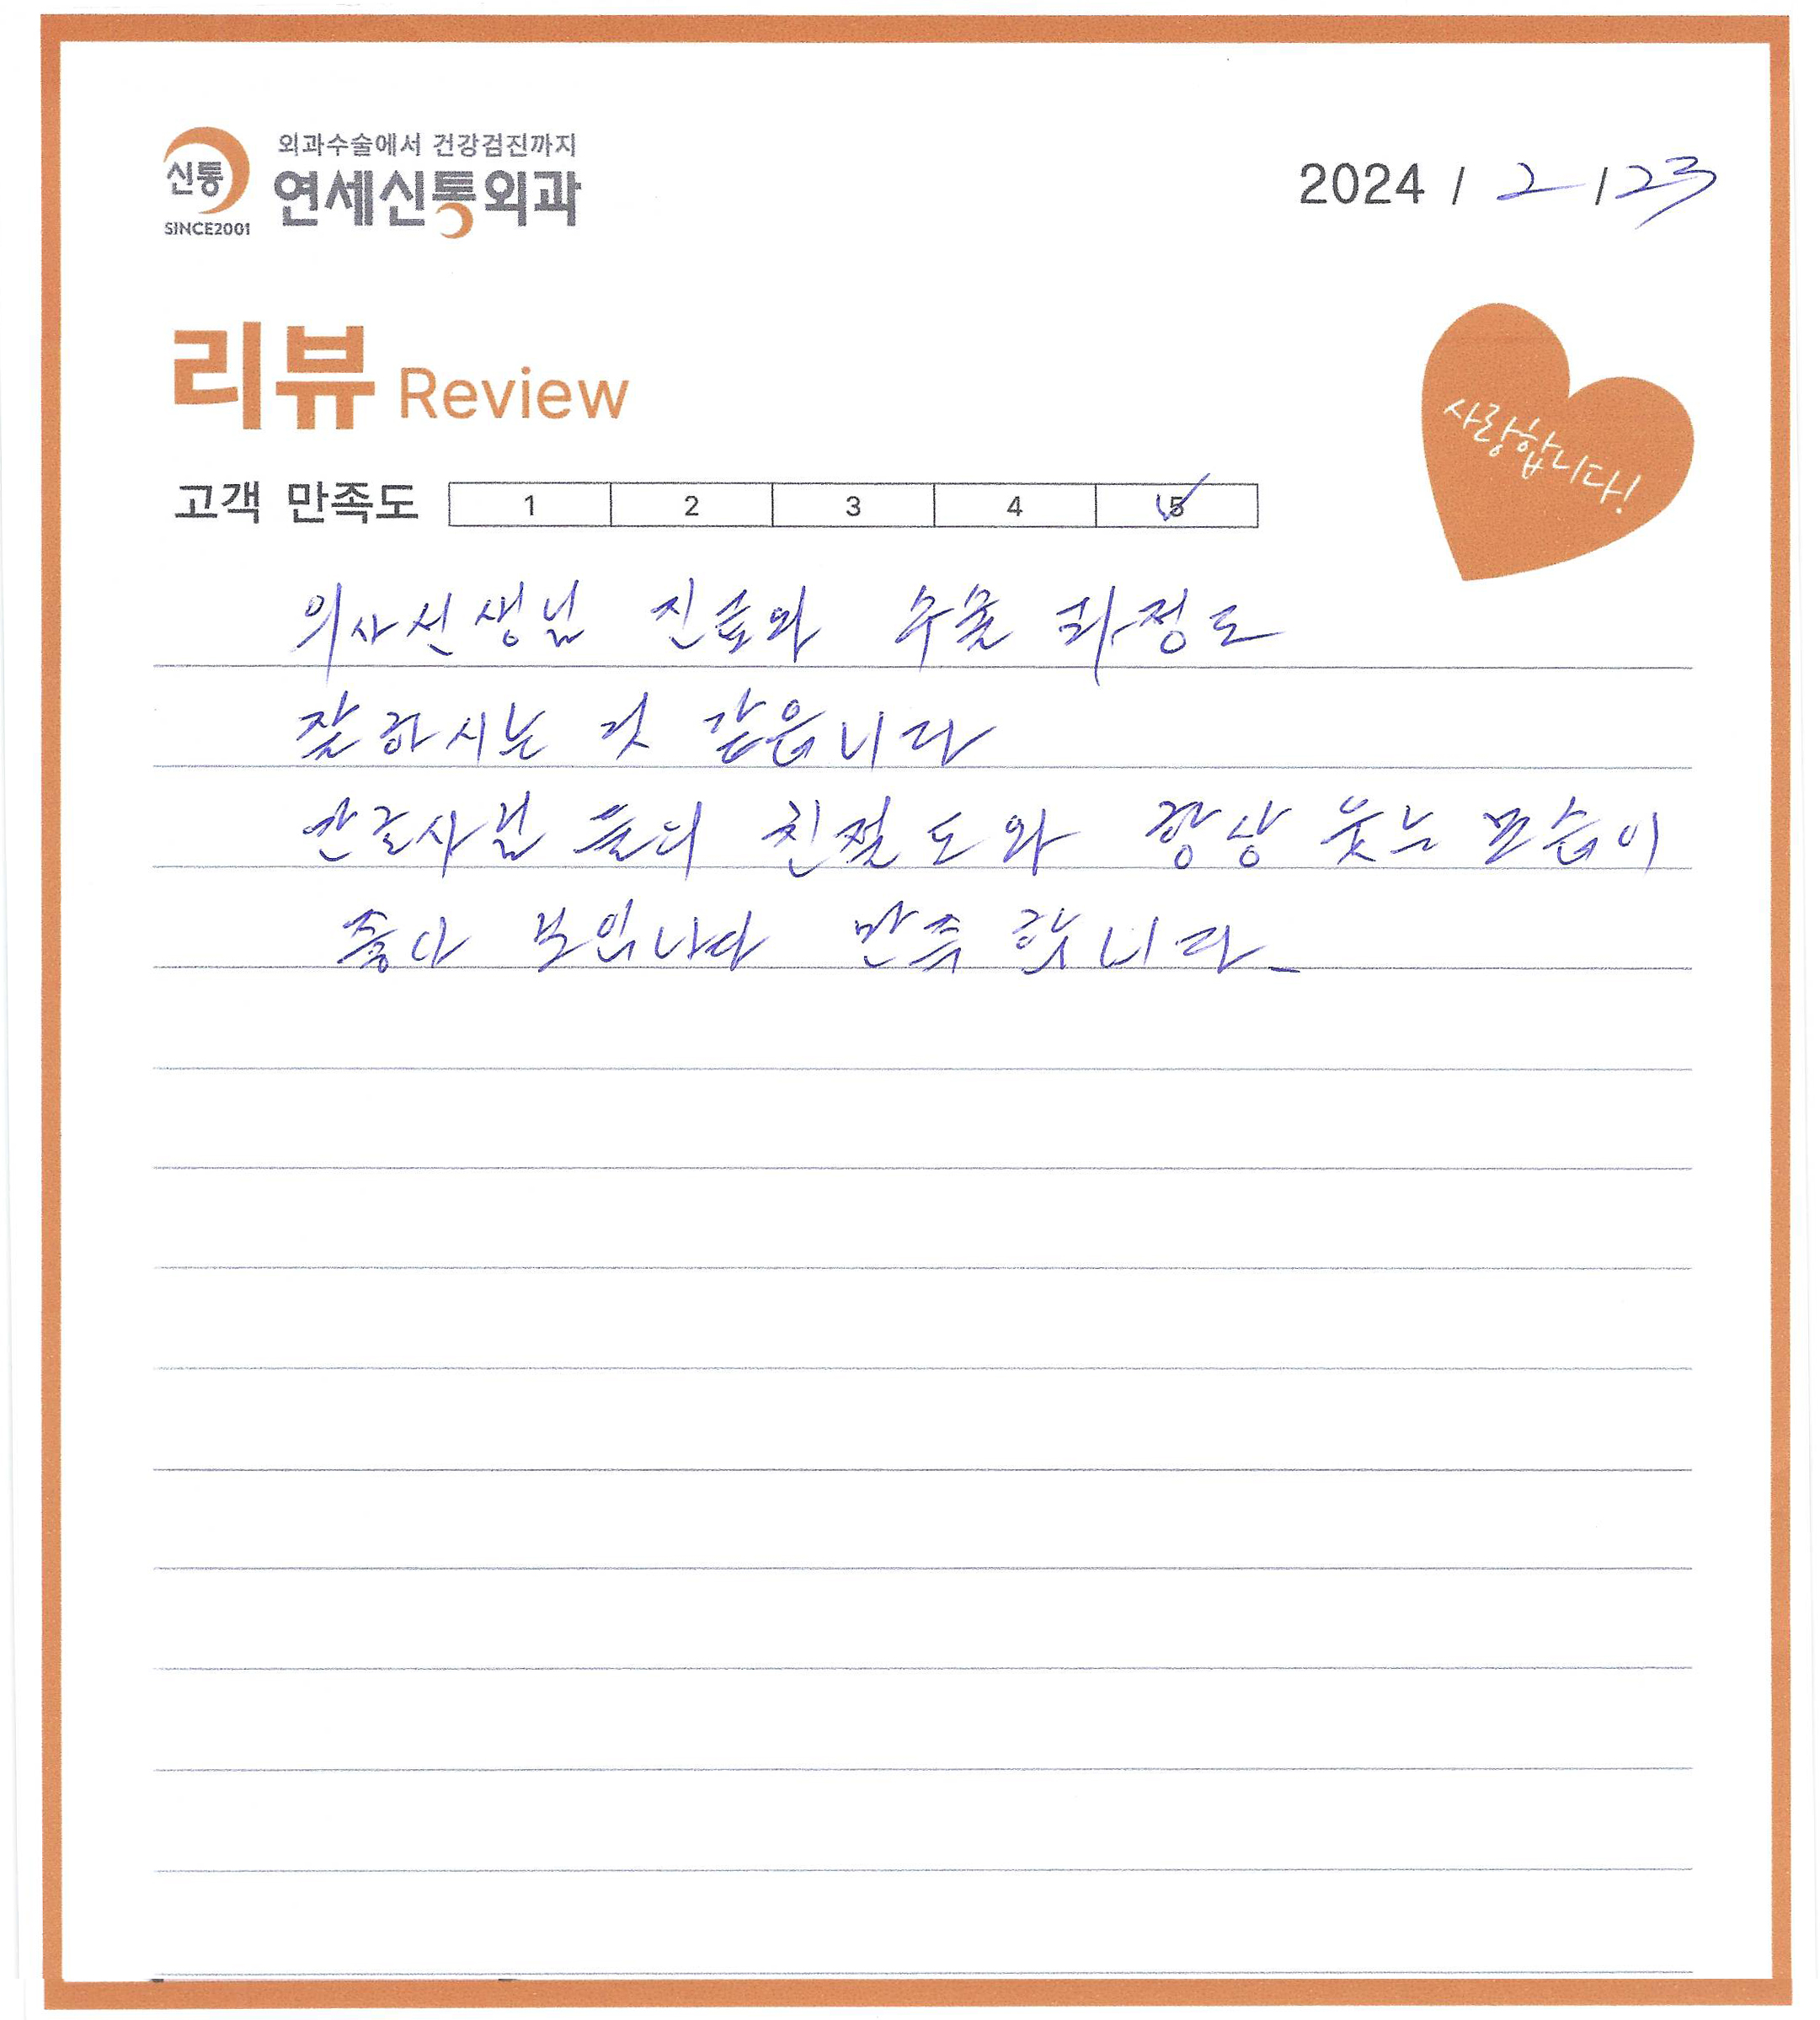 신통
SINCE2001
외과수술에서 건강검진까지
연세신통외과
2024 / 2 / 23
리뷰 Review
사랑합니다!
고객 만족도 1 2 3 4 5
의사선생님 진료와 수술 과정도
잘 하시는 것 같읍니다
간글사님 들의 친절도와 항상 웃는 모습이
좋다 보입니다 만족 합니다